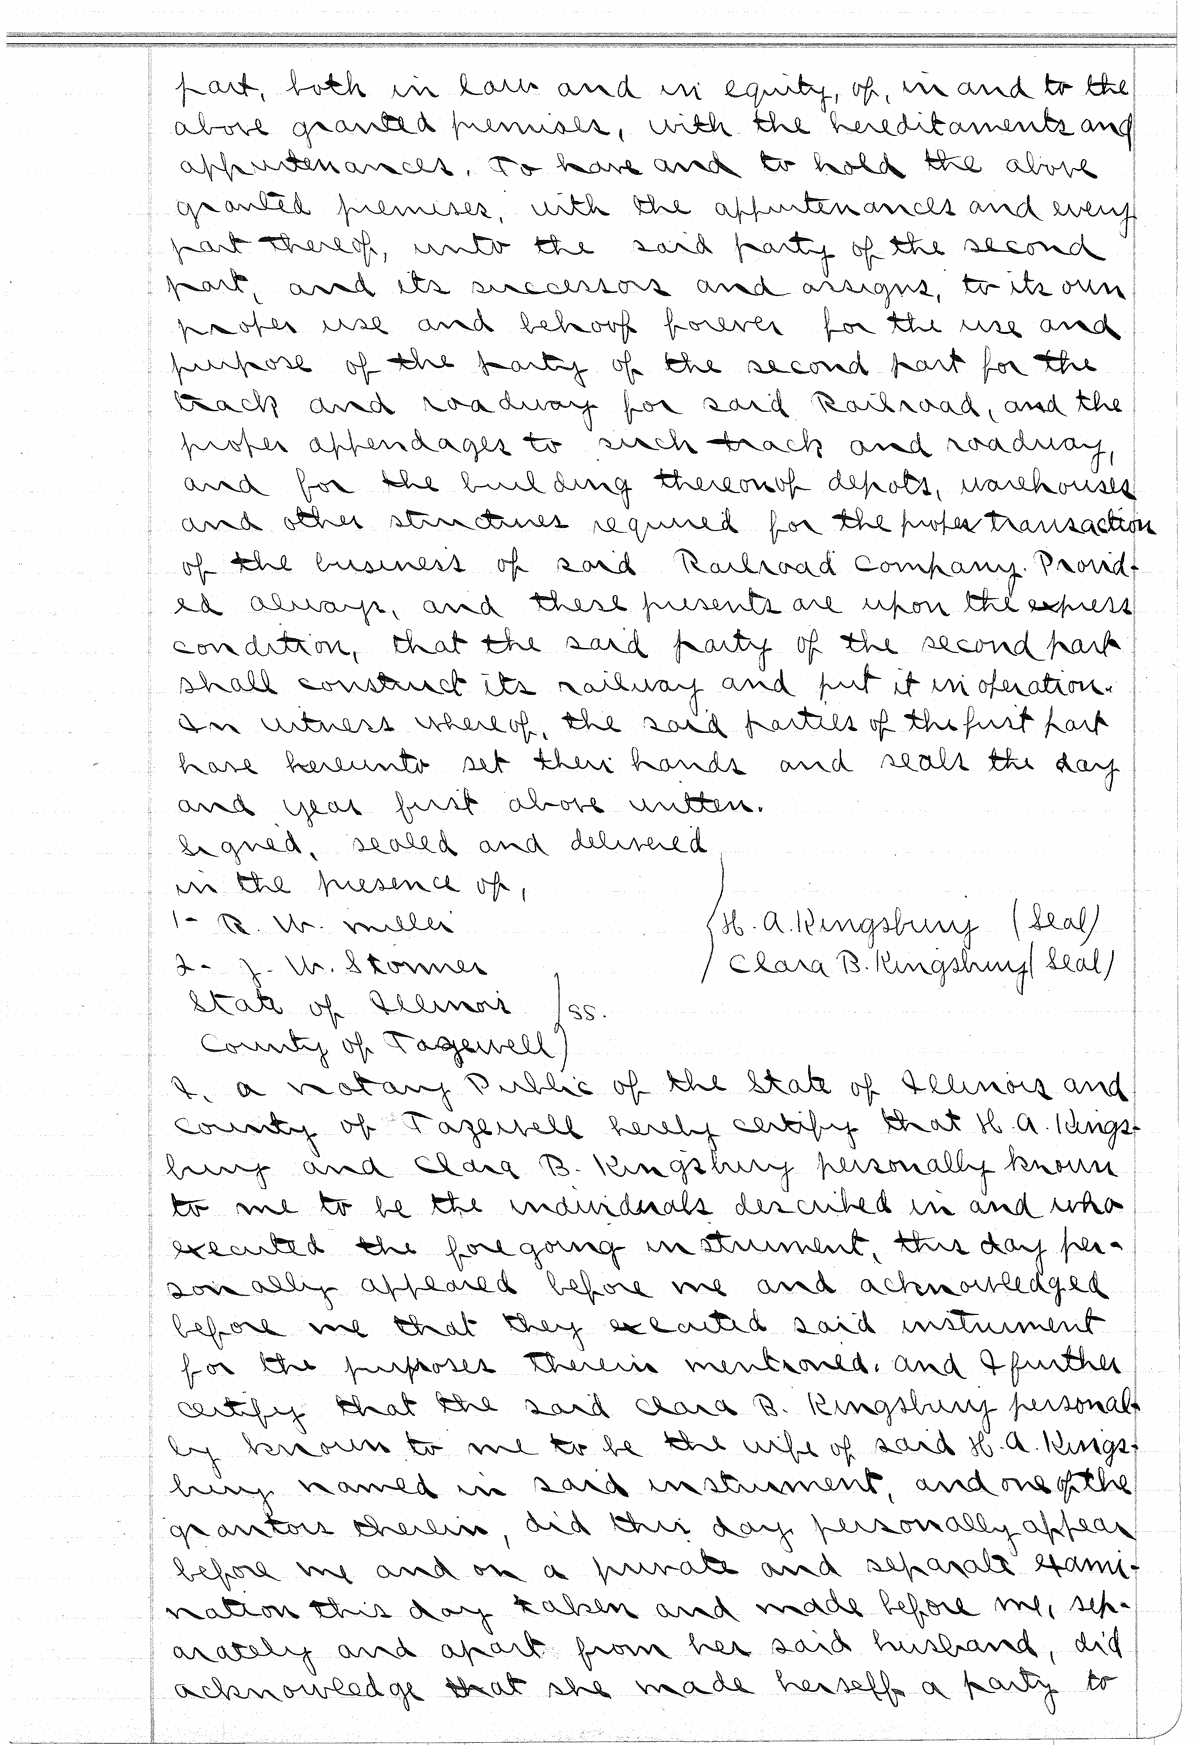 part, both in law and in equity, of, in and to the
above granted premises, with the hereditaments and
appurtenances. To have and to hold the above
granted premises, with the appurtenances and every
part thereof, unto the said party of the second
part, and its successors and assigns, to its own
proper use and behoof forever for the use and
purpose of the party of the second part for the
track and roadway for said Railroad, and the
proper appendages to such track and roadway,
and for the building thereon of depots, warehouses
and other structures required for the proper transaction
of the business of said Railroad Company. Provid-
ed always, and these presents are upon the express
condition, that the said party of the second part
shall construct its railway and put it in operation.
In witness whereof, the said parties of the first part
have hereunto set their hands and seals the day
and year first above written.
Signed, sealed and delivered
in the presence of,
1- R. W. Miller H. A. Kingsbury (Seal)
2- J. W. Stormer Clara B. Kingsbury (Seal)
State of Illinois ) ss.
County of Tazewell )
I, a Notary Public of the State of Illinois and
County of Tazewell hereby certify that H. A. Kings-
bury and Clara B. Kingsbury personally known
to me to be the individuals described in and who
executed the foregoing instrument, this day per-
sonally appeared before me and acknowledged
before me that they executed said instrument
for the purposes therein mentioned. and I further
certify that the said Clara B. Kingsbury personal-
ly known to me to be the wife of said H. A. Kings-
bury named in said instrument, and one of the
grantors therein, did this day personally appear
before me and on a private and separate exami-
nation this day taken and made before me, sep-
arately and apart from her said husband, did
acknowledge that she made herself a party to